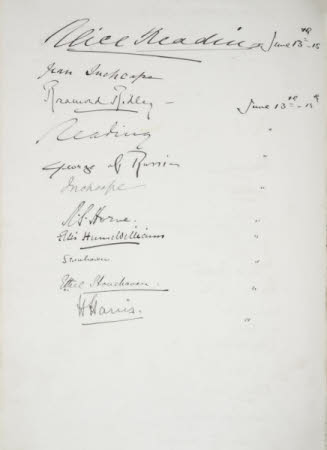 Alice Reading June 13th - 15
Jean Inchcape
Rosamond Ridley — June 13th - 15th
Reading "
George of Russia "
Inchcape "
A. S. Horne. "
Ellis HumeWilliams "
Stonehaven "
Ethel Stonehaven. "
H Harris. "